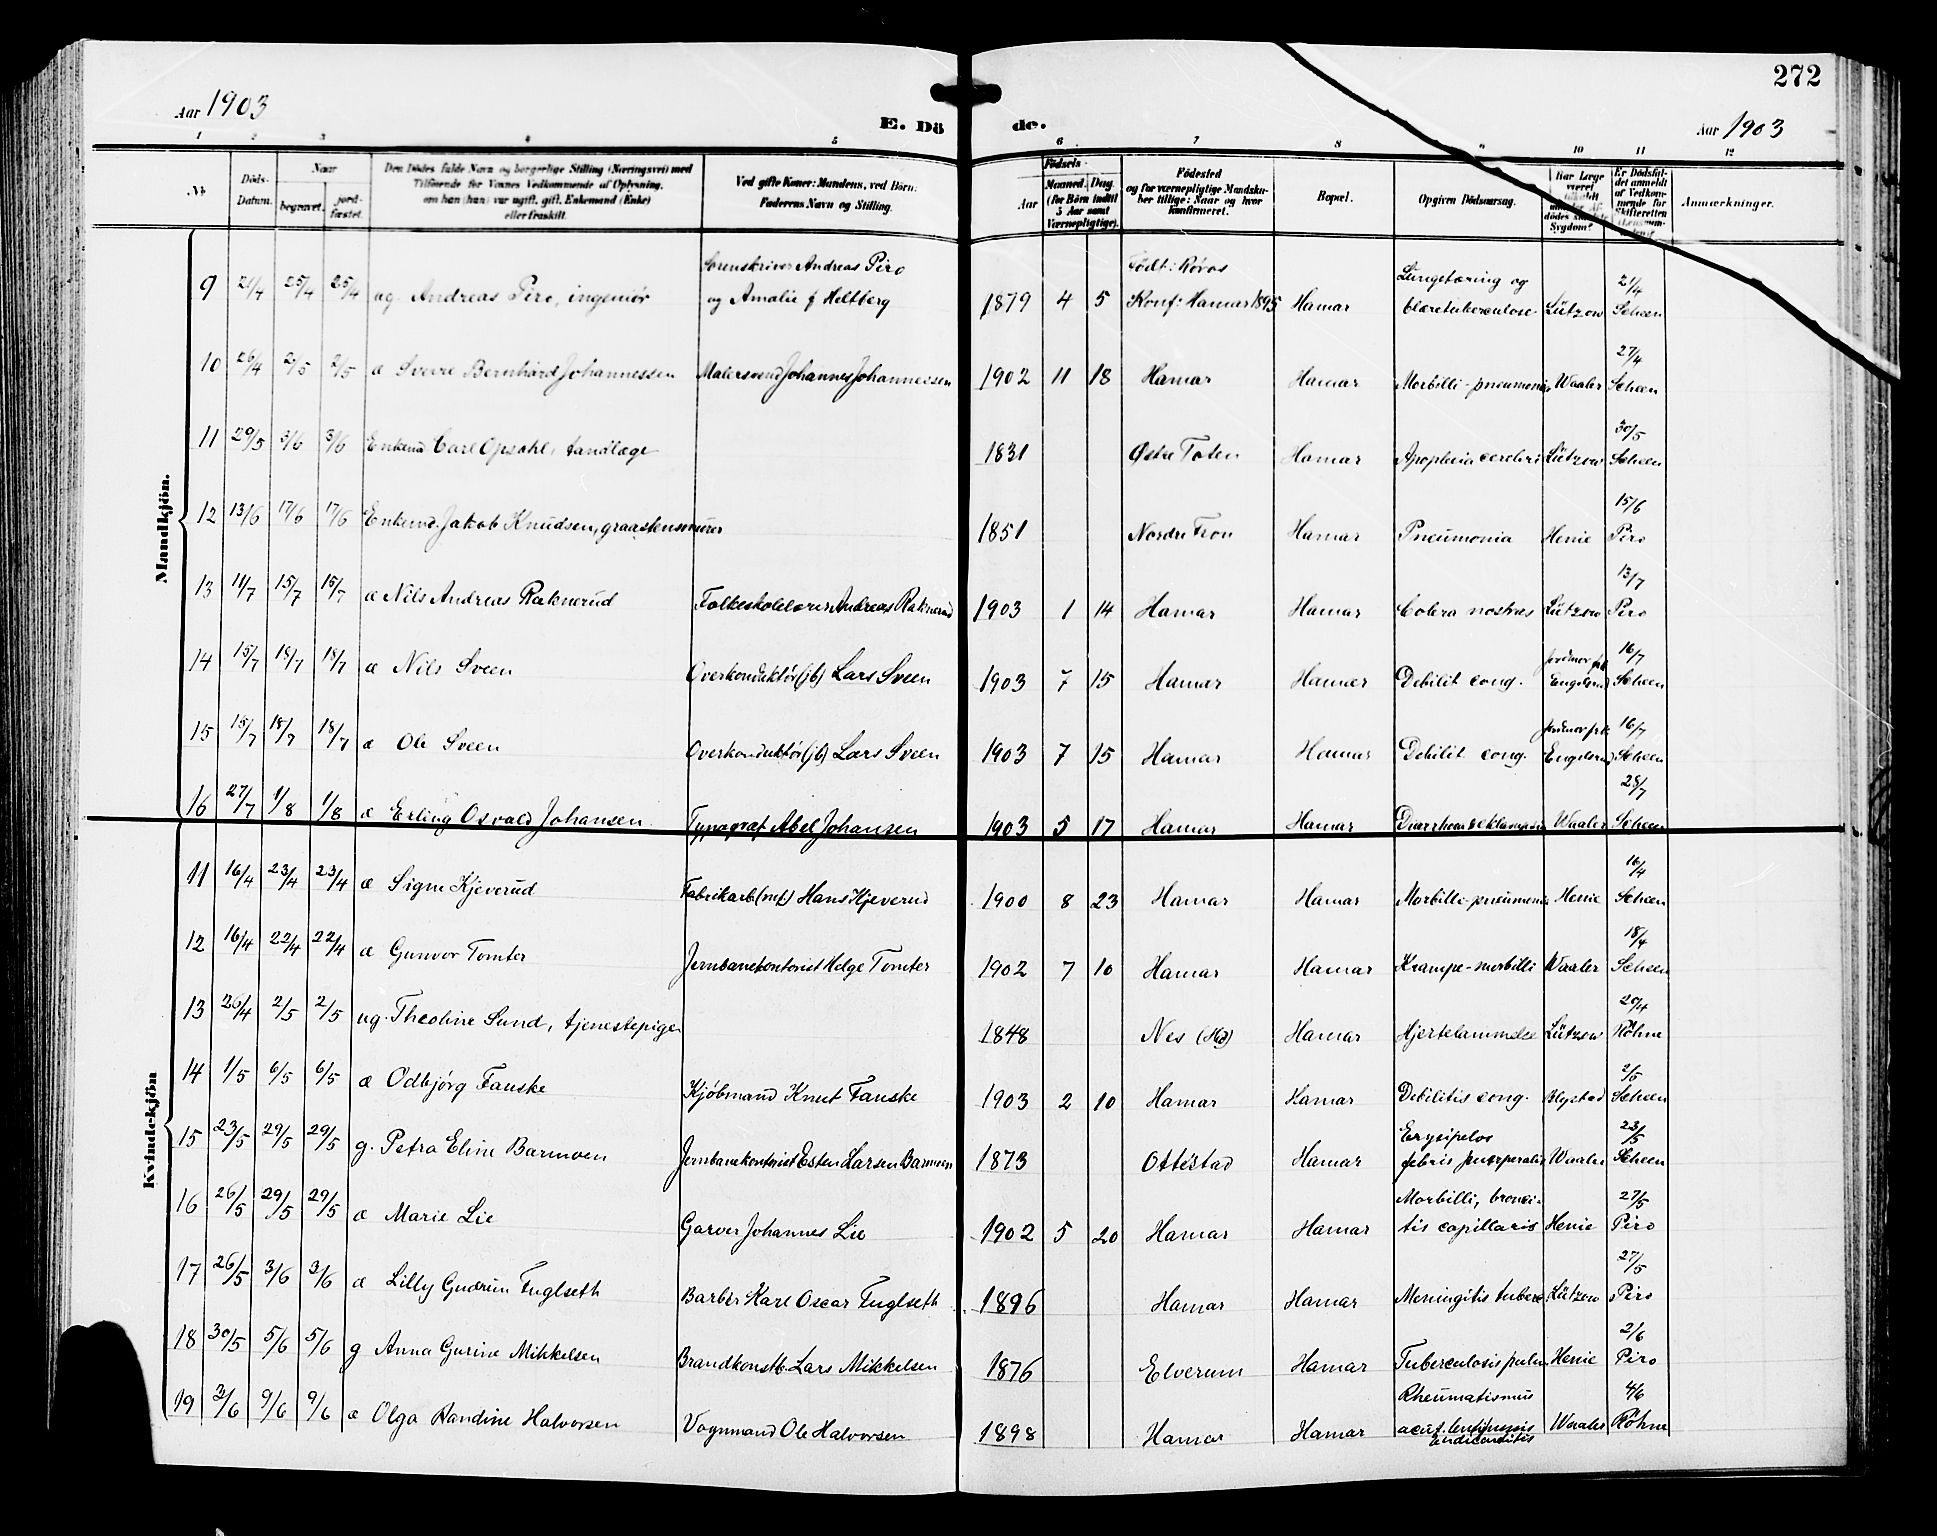 272
Aar 1903
E. Dö de.
Aar 1903
1 2 3 4 5 6 7 8 9 10 11 12
No
Döds-Datum.
Naar
begravet.
jord-fæstet.
Den Dödes fulde Navn og borgerlige Stilling (Næringsvei) med
Tilföiende for Voxnes Vedkommende af Oplysning,
om han (hun) var ugift, gift, Enkemand (Enke)
eller fraskilt.
Ved gifte Koner: Mandens, ved Börn:
Faderens Navn og Stilling.
Födsels-
Aar
Maaned. Dag.
(for Börn indtil
5 Aar samt
Værnepligtige).
Födested
og for værnepligtige Mandskaber tillige: Naar og hvor
konfirmeret.
Bopæl.
Opgiven Dödsaarsag.
Har Læge
været
Sygdom?
Er Dödsfaldet anmeldt
af Vedkommende for
Skifteretten
Anmærkninger.
Mandkjön.
9 21/4 25/4 25/4 ug. Andreas Piro, ingeniør Sorenskriver Andreas Piro og Amalie f Heltberg 1879 4 5 Født: Røros Konf: Hamar 1895 Hamar Lungetæring og blæretuberculose Lützow 21/4 Scheen
10 26/4 2/5 2/5 æ Sverre Bernhard Johannessen Malersvend Johannes Johannessen 1902 11 18 Hamar Hamar Morbilli-pneumonia Waaler 27/4 Scheen
11 29/5 3/6 3/6 Enkem Carl Opsahl, tandlæge 1831 Østre Toten Hamar Apoplexia cerebri Lützow 30/5 Scheen
12 13/6 17/6 17/6 Enkemd. Jakob Knudsen, graastensmurer 1851 Nordre Fron Hamar Pneumonia Henie 15/6 Piro
13 11/7 15/7 15/7 æ Nils Andreas Raknerud Folkeskolelærer Andreas Raknerud 1903 1 14 Hamar Hamar Colera nostras Lützow 13/7 Piro
14 15/7 18/7 18/7 æ Nils Sveen Overkonduktør (jb) Lars Sveen 1903 7 15 Hamar Hamar Debilit cong. jordmor frk 16/7 Scheen
15 15/7 18/7 18/7 æ Ole Sveen Overkonduktør (jb) Lars Sveen 1903 7 15 Hamar Hamar Debilit cong. jordmor frk 16/7 Scheen
16 27/7 1/8 1/8 æ Erling Osvald Johansen Typograf Abel Johansen 1903 5 17 Hamar Hamar Diarrhoea & eklampsia Waaler 28/7 Scheen
Kvindekjön
11 16/4 23/4 23/4 æ Signe Kjeverud Fabrikarb (mf) Hans Kjeverud 1900 8 23 Hamar Hamar Morbilli-pneumonia Henie 16/4 Scheen
12 16/4 22/4 22/4 æ Gunvor Tomter Jernbanekontorist Helge Tomter 1902 7 10 Hamar Hamar Krampe-morbilli Waaler 18/4 Scheen
13 26/4 2/5 2/5 ug. Theoline Sund, tjenestepige 1848 Nes (Hd) Hamar Hjertelammelse Lützow 29/4 Röhne
14 1/5 6/5 6/5 æ Odbjørg Fauske Kjøbmand Knut Fauske 1903 2 10 Hamar Hamar Debilitis cong. Blystad 2/5 Scheen
15 23/5 29/5 29/5 g. Petra Eline Barmoen Jernbanekontorist Esten Larsen Barmoen 1873 Ottestad Hamar Erysipelas febris puerperalis Waaler 23/5 Scheen
16 26/5 29/5 29/5 æ Marie Lie Garver Johannes Lie 1902 5 20 Hamar Hamar Morbilli, broncitis capillaris Henie 27/5 Piro
17 26/5 3/6 3/6 æ Lilly Gudrun Fuglseth Barber Karl Oscar Fuglseth 1896 Hamar Hamar Meningitis tuberc Lützow 27/5 Piro
18 30/5 5/6 5/6 g Anna Gurine Mikkelsen Brandkonstb. Lars Mikkelsen 1876 Elverum Hamar Tuberculosis pulm Henie 2/6 Piro
19 3/6 9/6 9/6 æ Olga Randine Halvorsen Vognmand Ole Halvorsen 1898 Hamar Hamar Rheumatismus acut. endicarditis Waaler 4/6 Röhne